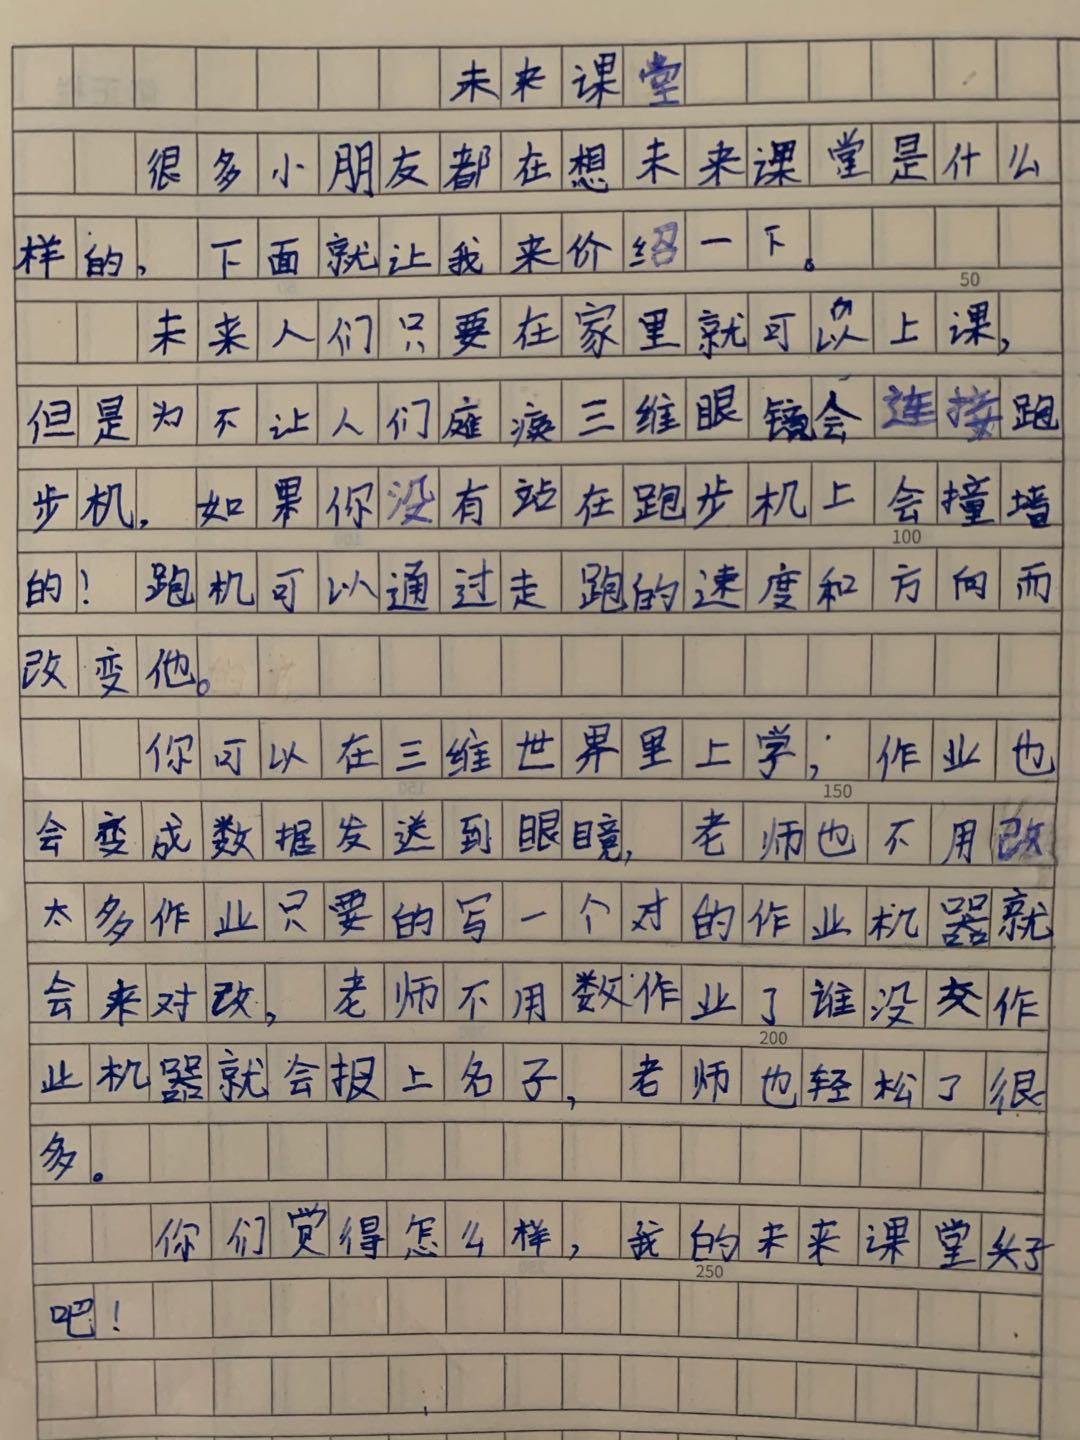 未来课堂
很多小朋友都在想未来课堂是什么
样的,下面就让我来价绍一下。
50
未来人们只要在家里就可以上课,
但是为不让人们瘫痪三维眼镜会连接跑
步机,如果你没有站在跑步机上会撞墙
100
的!跑机可以通过走跑的速度和方向而
改变他。
你可以在三维世界里上学;作业也
150
会变成数据发送到眼瞙,老师也不用改
太多作业只要的写一个对的作业机器就
会来对改,老师不用数作业了谁没交作
200
业机器就会报上名子,老师也轻松了很
多。
你们觉得怎么样,我的未来课堂好
250
吧!